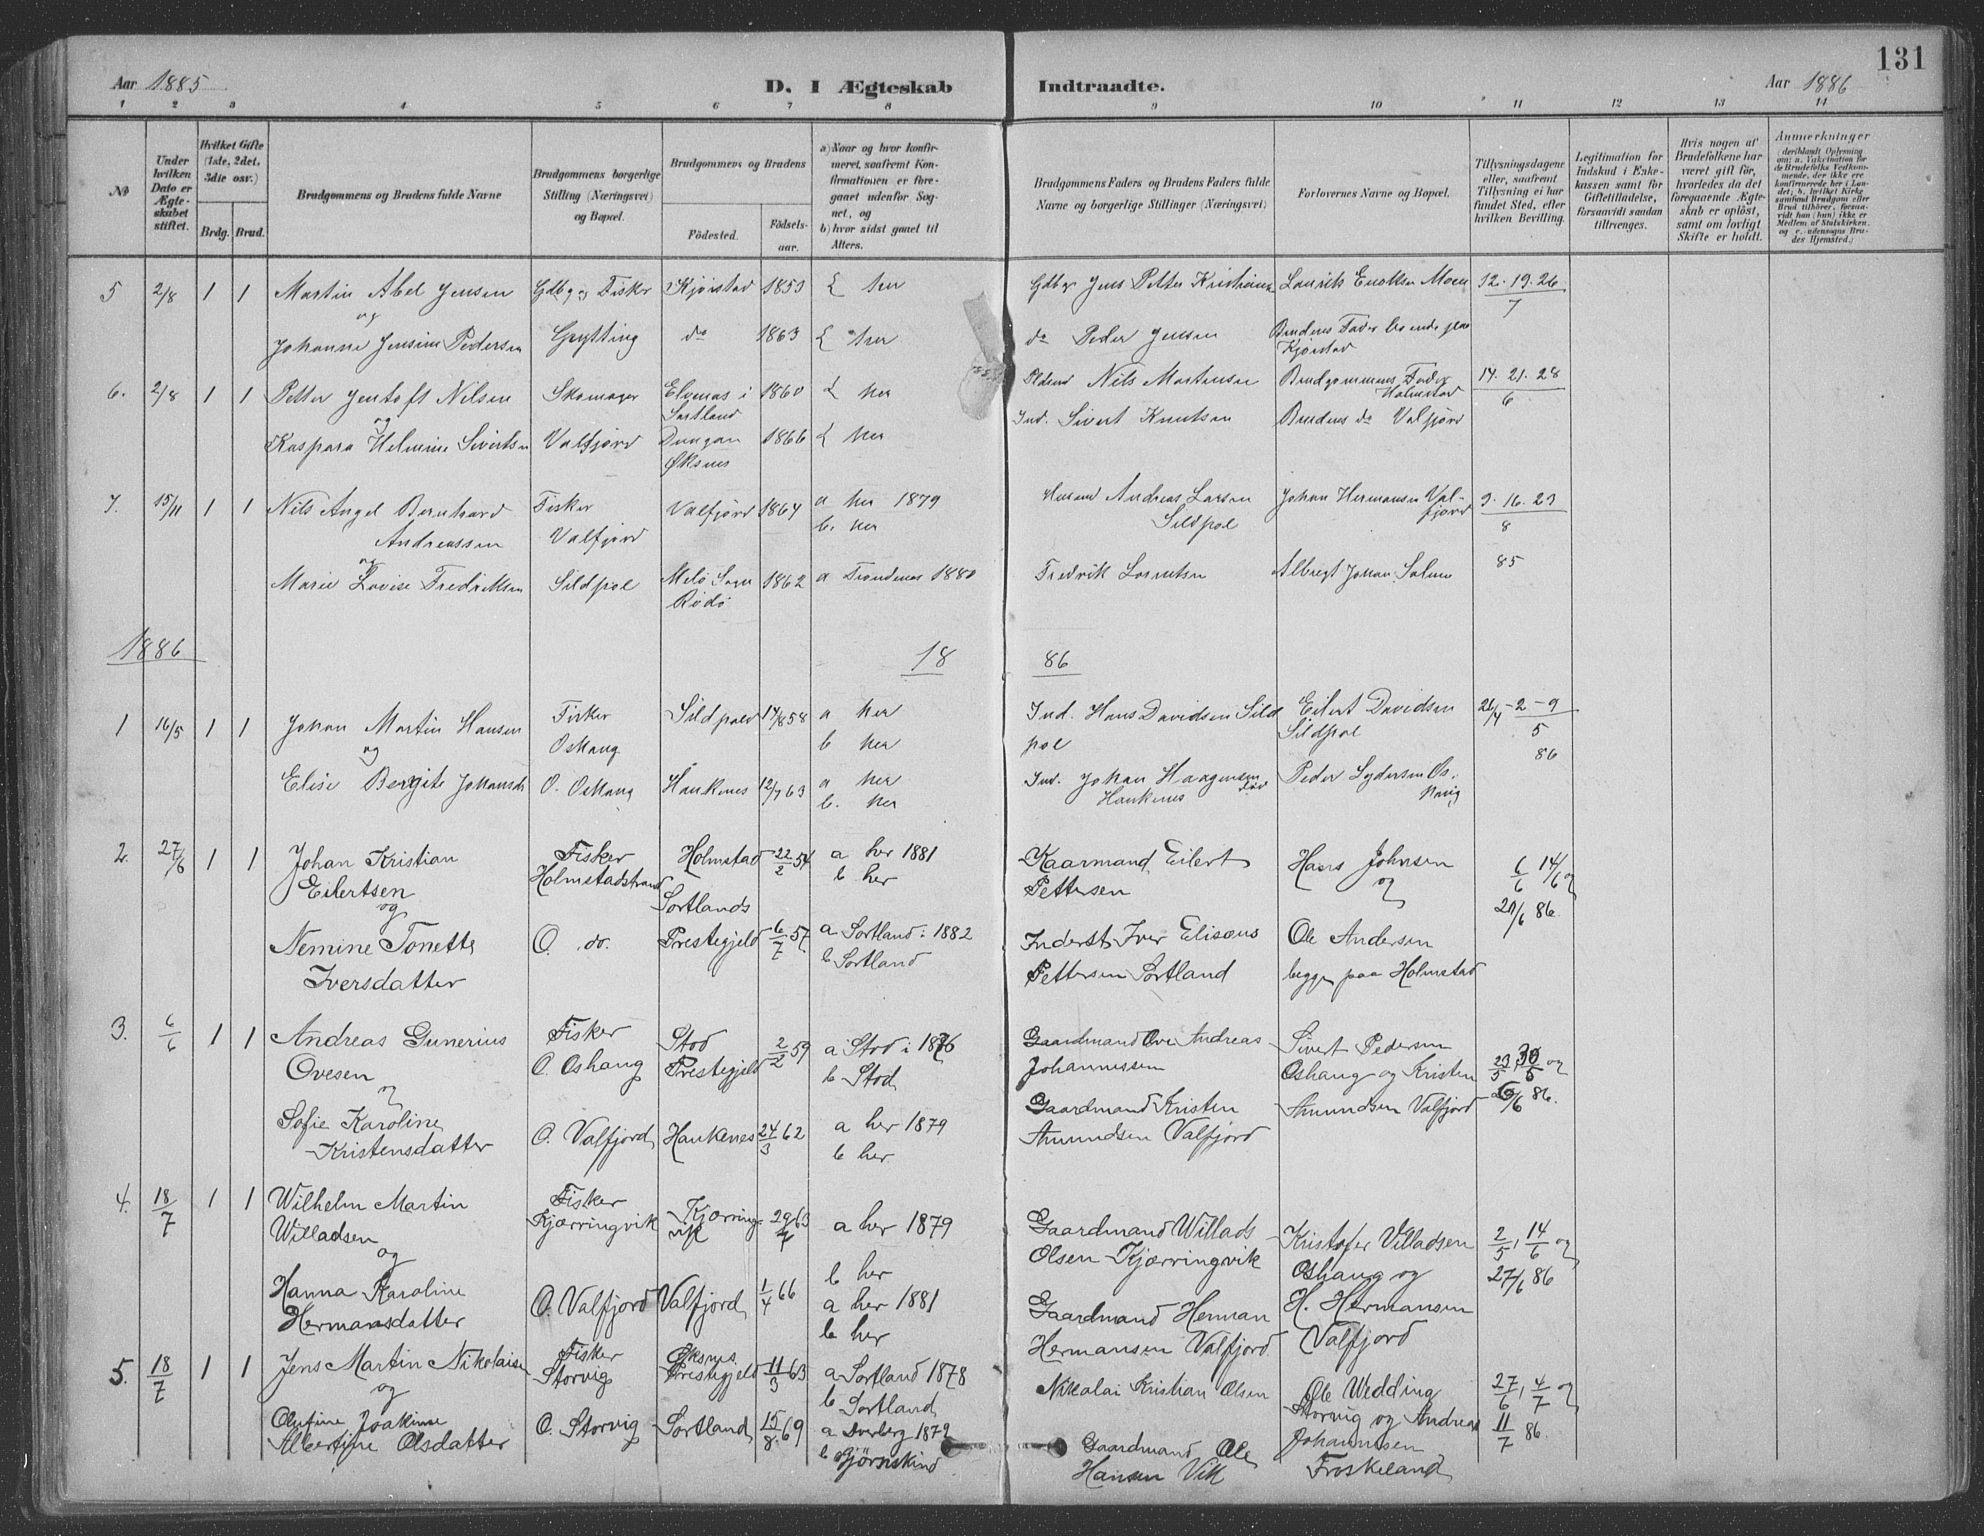 131
Aar 1885
D. I Ægteskab
Indtraadte.
Aar 1886
1 2 3 4 5 6 7 8 9 10 11 12 13 14
No
Under hvilken Dato er Ægteskabet stiftet.
Hvilket Gifte (1ste, 2det, 3die osv.)
Brdg. Brud.
Brudgommens og Brudens fulde Navne
Brudgommens borgerlige Stilling (Næringsvei) og Bopæl.
Brudgommens og Brudens
Födested.
Födselsaar.
a) Naar og hvor konfirmeret, saafremt Konfirmationen er foregaaet udenfor Sognet, og
b) hvor sidst gaaet til Alters.
Brudgommens Faders og Brudens Faders fulde Navne og borgerlige Stillinger (Næringsvei)
Forlovernes Navne og Bopæl.
Tillysningsdagene eller, saafremt Tillysning ei har fundet Sted, efter hvilken Bevilling.
Legitimation for Indskud i Enkekassen samt for Giftetilladelse, forsaavidt saadan tiltrænges.
Hvis nogen af Brudefolkene har været gift før, hvorledes da det foregaaende Ægteskab er oplöst, samt om lovligt Skifte er holdt.
Anmerkninger (deriblandt Oplysning om: a. Vakcination for de Brudefolks Vedkommende, der ikke ere konfirmerede her i Landet; b. hvilket Kirkesamfund Brudgom eller Brud tilhörer, forsaavidt han (hun) ikke er Medlem af Statskirken, og c. udensogns Brudes Hjemsted.)
5 2/8 1 1 Martin Abel Jensen Gdbg og Fisker Kjørstad 1853 { her Gdbg Jens Petter Kristians Laurits Enoksen Moen 12. 19. 26
og 7
Johanne Jensine Pedersen Grytting do 1863 { her do Peder Jensen Brudens Fader boende paa
Kjørstad
6. 2/8 1 1 Petter Jentoft Nilsen Skomager Elvenes i 1860 { her Nils Martinsen Brudgommens Fader 14 21 28
og Sortland Holmstad 6
Kaspara Helmine Sivertsn Valfjord 1866 { her Ind. Sivert Knutsen Brudens do Valfjord
Øksnes
7. 15/11 1 1 Nils Angel Bernhard Fisker Valfjord 1864 a her 1879 Andreas Larsen Johan Hermansen Val- 9. 16. 23
Andreassen Valfjord b. her Sildpol fjord 8
og
Marie Lovise Fredriksen Sildpol Melö Sogn 1862 a Trondenes 1880 Fredrik Lorentsen Albregt Johan Salmn 85
Rödö
1886 18 86
1 16/5 1 1 Johan Martin Hansen Fisker Sildpold 14/8 58 a her Ind. Hans Davidsen Sild Eilert Davidsen 26/4 - 2 - 9
og Oshang b her pol Sildpol 5
86
Elise Bergite Johansdr O. Oshang Haukenes 12/7 63 a her Ind. Johan Haagensen Peder Lydersen Os-
b. her Haukenes hang
2. 27/6 1 1 Johan Kristian Fisker Holmstad 22/2 54 a her 1881 Kaarmand Eilert Hans Johnsen 6/6 14/6 og
Eilertsen Holmstadstrand b her Pettersen og 27/6 86.
og Sortlands
Nemine Tonette O. do. Prestegjeld 6/7 57 a Sortland i 1882 Inderst Iver Elisæus Ole Andersen
Iversdatter b Sortland Pettersen Sortland begge paa Holmstad
3. 6/6 1 1 Andreas Gunerius Fisker Stod 2/2 59 a Stod i 1876 Gaardmand Ove Andreas Sivert Pedersen 23/5 30/5 og
Ovesen O. Oshang Prestegjeld b Stod Johannessen Oshang og Kristen 6/6 86.
og
Sofie Karoline O. Valfjord Haukenes 24/3 62 a her 1879 Gaardmand Kristen Amundsen Valfjord
Kristensdatter b her. Amundsen Valfjord
4. 18/7 1 1 Wilhelm Martin Fisker Kjørring- 29/7 63 a her 1879 Gaardmand Willads Kristofer Villadsen 2/5, 14/6 og
Willadsen Kjørringvik vik b her Olsen Kjørringvik Oshang og 27/6 86
og
Hanna Karoline O. Valfjord Valfjord 1/4 66 a her 1881 Gaardmand Herman H. Hermansen
Hermansdatter b her Hermansen Valfjord Valfjord
5. 18/7 1 1 Jens Martin Nikolaisen Fisker Øksnes 11/3 63 a Sortland 1878 Nikolai Kristian Olsen Ole Wedding 27/6, 4/7 og
og Storvig Prestegjeld b Sortland Storvig og Andreas 11/7 86.
Olufine Joakime O. Storvig Sortland 15/8 69 a Dverberg 1879 Gaardmand Ole Johannesen
Albertine Olsdatter b Bjørnskind Hansen Vik Froskeland